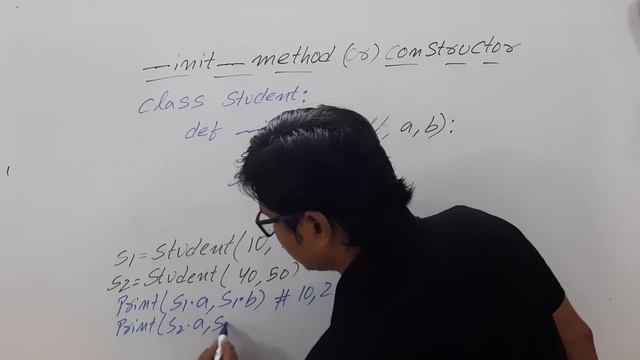 __init__ method (or) constructor
class Student:
def a, b):
S1 = Student(10,
S2 = Student(40, 50)
Print(S1.a, S1.b) # 10, 2
Print(S2.a, S